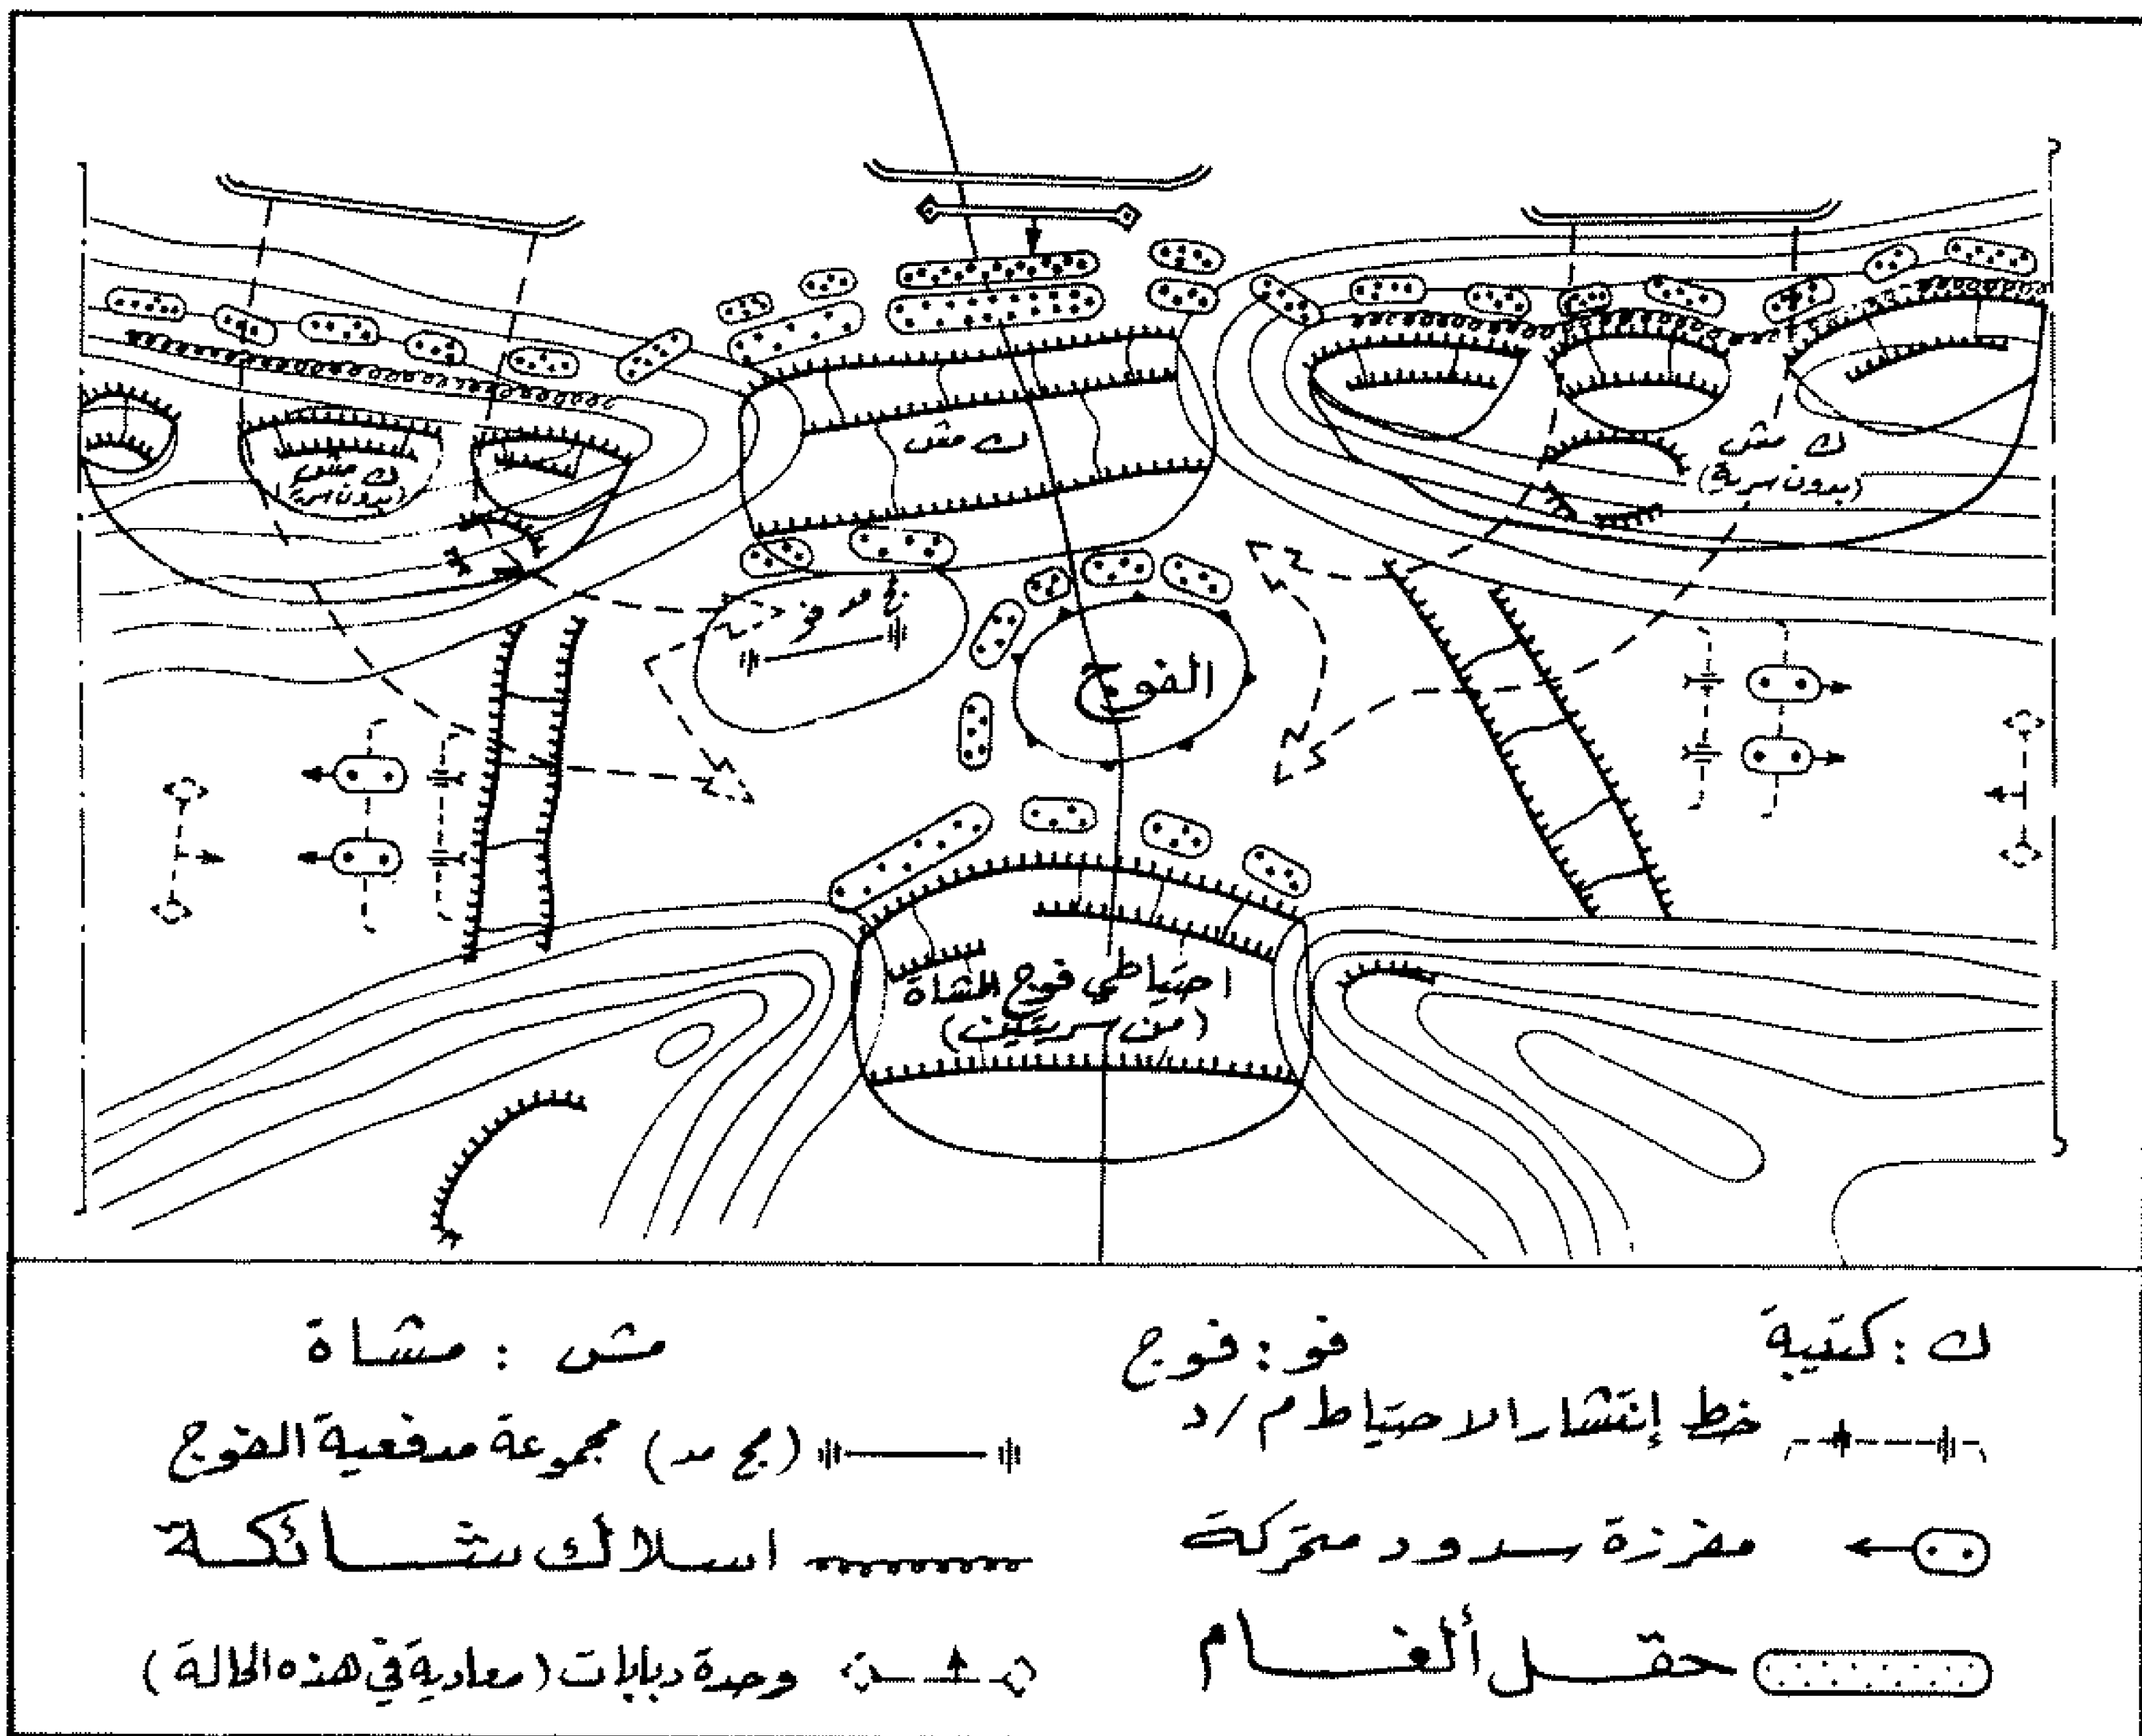 ك مش
ك مش
(بدون سرية)
ك مش
(بدون سرية)
مج مد فو
الفوج
احتياطي فوج المشاة
(من سريتين)
ك : كتيبة
فو : فوج
مش : مشاة
خط إنتشار الاحتياط م/د
(مج مد) مجموعة مدفعية الفوج
مفرزة سدود متحركة
اسلاك شائكة
حقل ألغام
وحدة دبابات (معادية في هذه الحالة)